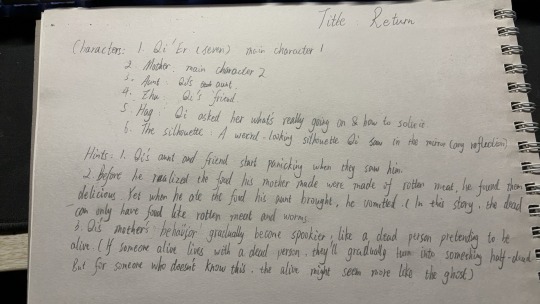 Title Return
Characters: 1. Qi'Er (seven) main character 1
2. Mother: main character 2
3. Aunt: Qi's aunt
4. Zhu: Qi's friend
5. Hag: Qi asked her what's really going on & how to solve it
6. The silhouette: A weird-looking silhouette Qi saw in the mirror (any reflection)
Hints: 1. Qi's aunt and friend start panicking when they saw him.
2. Before he realized the food his mother made were made of rotten meat, he found them
delicious. Yet when he ate the food his aunt brought, he vomitted. (In this story, the dead
can only have food like rotten meat and worms.
3. Qi's mothers' behavior gradually become spookier, like a dead person pretending to be
alive. (If someone alive lives with a dead person, they'll gradually turn into something half-dead.
But for someone who doesn't know this, the alive might seem more like the ghost)